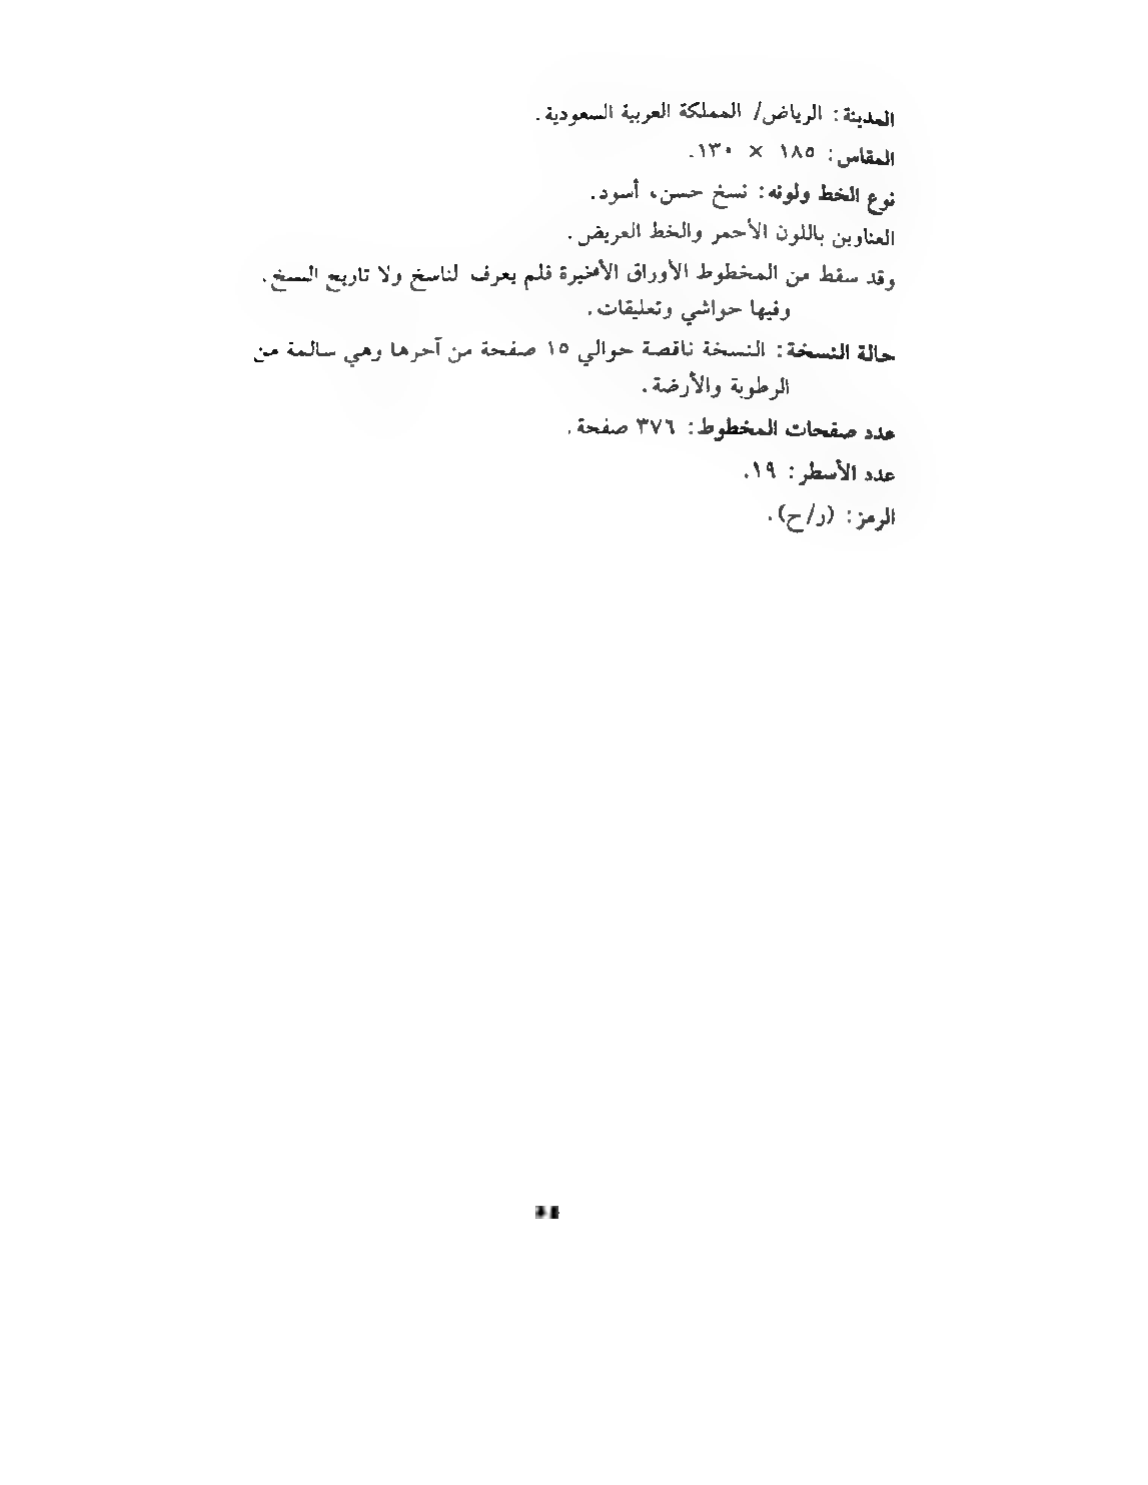 المدينة: الرياض/ المملكة العربية السعودية.
المقاس: ١٨٥ × ١٣٠.
نوع الخط ولونه: نسخ حسن، أسود.
العناوين باللون الأحمر والخط العريض.
وقد سقط من المخطوط الأوراق الأخيرة فلم يعرف لناسخ ولا تاريخ النسخ.
وفيها حواشي وتعليقات.
حالة النسخة: النسخة ناقصة حوالي ١٥ صفحة من آخرها وهي سالمة من
الرطوبة والأرضة.
عدد صفحات المخطوط: ٣٧٦ صفحة.
عدد الأسطر: ١٩.
الرمز: (ر/ح).